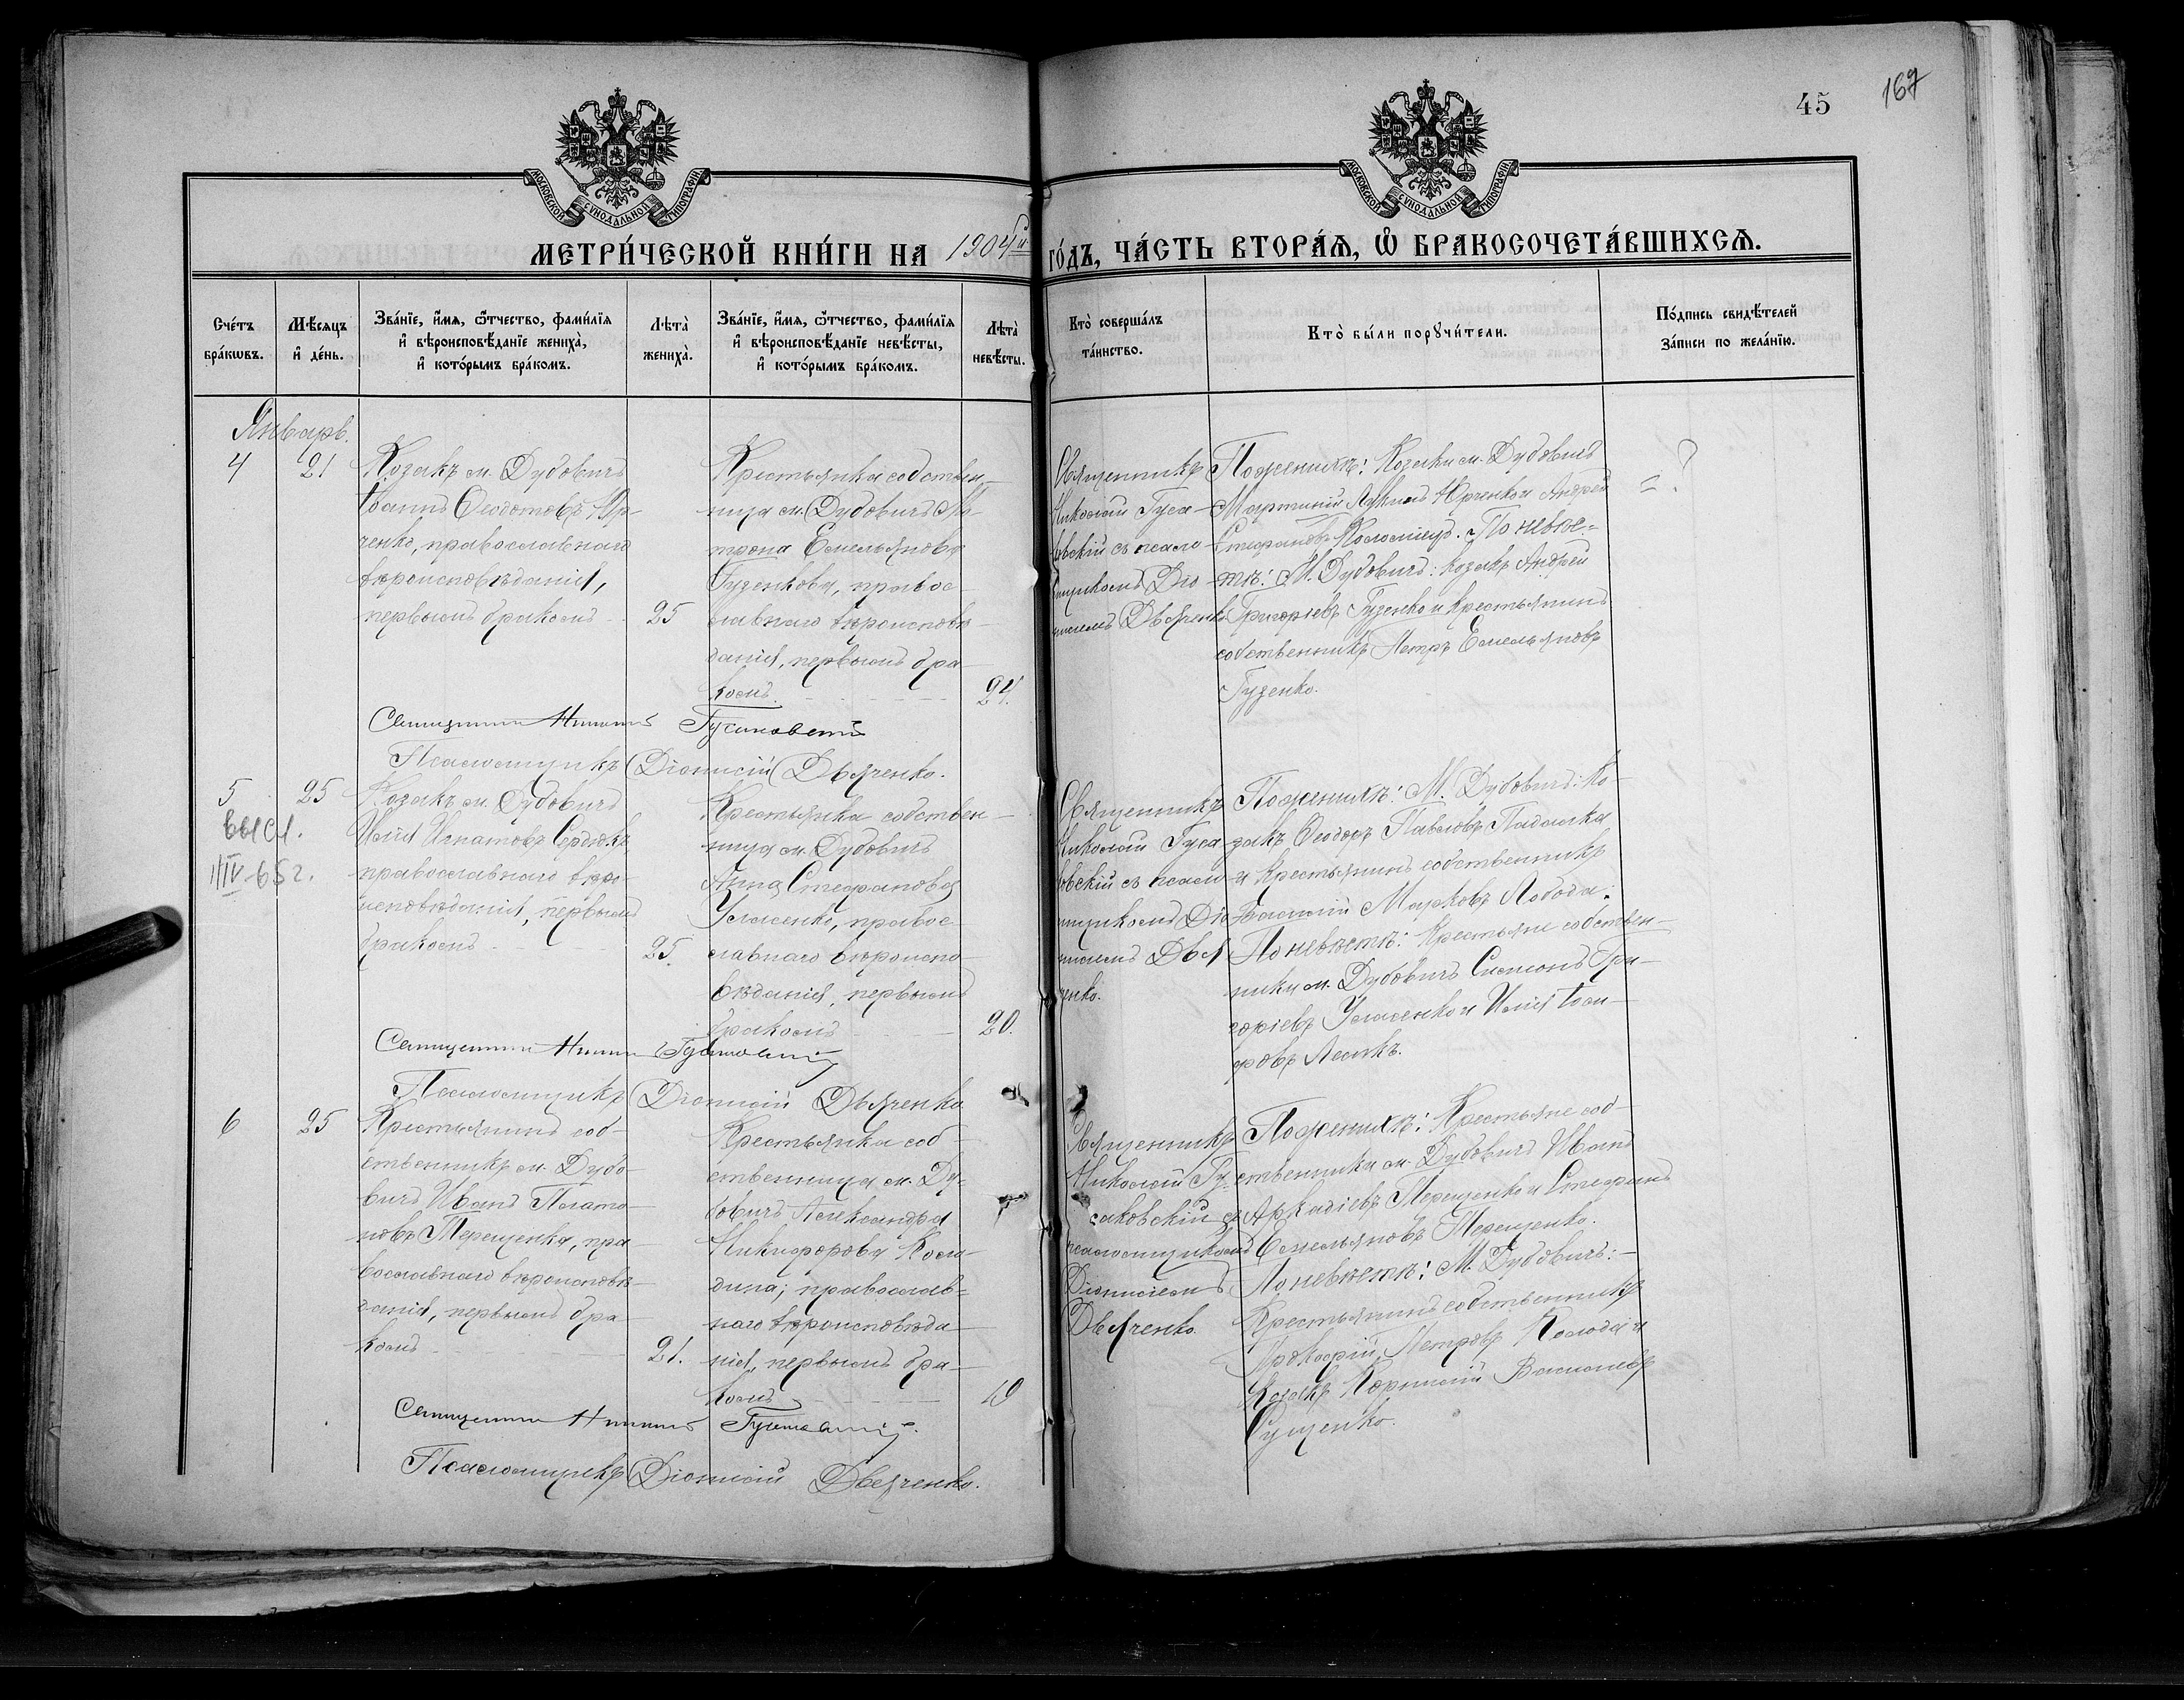 45
167
МОСКОВСКОЙ СУНОДАЛЬНОЙ ТИПОГРАФІИ
МОСКОВСКОЙ СУНОДАЛЬНОЙ ТИПОГРАФІИ
МЕТРИ́ЧЕСКОЙ КНИ́ГИ НА 1904й ГО́ДЪ, ЧА́СТЬ ВТОРА́Я, Ѡ БРАКОСОЧЕТА́ВШИХСЯ.
Сче́тъ
бра́кωвъ.
Мѣ́сяцъ
и҆ де́нь.
Зва́нїе, и҆́мя, ѻ҆́тчество, фами́лїя
и҆ вѣроисповѣ́данїе жениха̀,
и҆ кото́рымъ бра́комъ.
Лѣта̀
жениха̀.
Зва́нїе, и҆́мя, ѻ҆́тчество, фами́лїя
и҆ вѣроисповѣ́данїе невѣ́сты,
и҆ кото́рымъ бра́комъ.
Лѣта̀
невѣ́сты.
Кто̀ соверша́лъ
та́инство.
Кто̀ бы́ли порꙋчи́тели.
По́дпись свидѣ́телей
за́писи по жела́нїю.
Январь.
4
21
Козакъ м. Дубовичъ
Іоаннъ Ѳеодотовъ Юр-
ченко, православнаго
вѣроисповѣданія,
первымъ бракомъ
25
Крестьянка собствен-
ница м. Дубовичъ Ма-
трона Емельянова
Гузенкова, правос-
лавнаго вѣроисповѣ-
данія, первымъ бра-
комъ.
24.
Священникъ
Николай Гуса-
ковскій съ псало-
мщикомъ Діо-
нисіемъ Дьяченко
По женихѣ: Козаки м. Дубовичъ
Мартиній Лукинъ Юрченко и Андрей
Стефановъ Коломіецъ. По невѣс-
тѣ: М. Дубовичъ: козакъ Андрей
Григорьевъ Гузенко и крестьянинъ
собственникъ Петръ Емельяновъ
Гузенко.
= ?
Священникъ Николай Гусаковскій
Псаломщикъ Діонисій Дьяченко.
5
выСл.
1/IV-65г.
25
Козакъ м. Дубовичъ
Илія Игнатовъ Сердюкъ,
православнаго вѣро-
исповѣданія, первымъ
бракомъ
25.
Крестьянка собствен-
ница м. Дубовичъ
Анна Стефанова
Усменко, правос-
лавнаго вѣроиспо-
вѣданія, первымъ
бракомъ
20.
Священникъ
Николай Гуса-
ковскій съ псало-
мщикомъ Діо-
нисіемъ Дья-
ченко.
По женихѣ: М. Дубовичъ: Ко-
закъ Ѳеодоръ Павловъ Падалка
и крестьянинъ собственникъ
Василій Марковъ Лобода;
По невѣстѣ: Крестьяне собствен-
ники м. Дубовичъ Симеонъ Гри-
горіевъ Усменко и Илія Іоси-
фовъ Лесикъ.
Священникъ Николай Гусаковскій
Псаломщикъ Діонисій Дьяченко
6
25
Крестьянинъ соб-
ственникъ м. Дубо-
вичъ Иванъ Плато-
новъ Терещенко, пра-
вославнаго вѣроисповѣ-
данія, первымъ бра-
комъ
21.
Крестьянка соб-
ственница м. Ду-
бовичъ Александра
Никифорова
православ-
наго вѣроисповѣда-
нія, первымъ бра-
комъ
19
Священникъ
Николай Гу-
саковскій съ
псаломщикомъ
Діонисіемъ
Дьяченко.
По женихѣ: Крестьяне соб-
ственники м. Дубовичъ Иванъ
Аркадіевъ Терещенко и Стефанъ
Емельяновъ Терещенко.
По невѣстѣ: М. Дубовичъ:-
Крестьянинъ собственникъ
Прокофій Петровъ Колода и
Козакъ Корнилій Васильевъ
Сущенко.
Священникъ Николай Гусаковскій.
Псаломщикъ Діонисій Дьяченко.